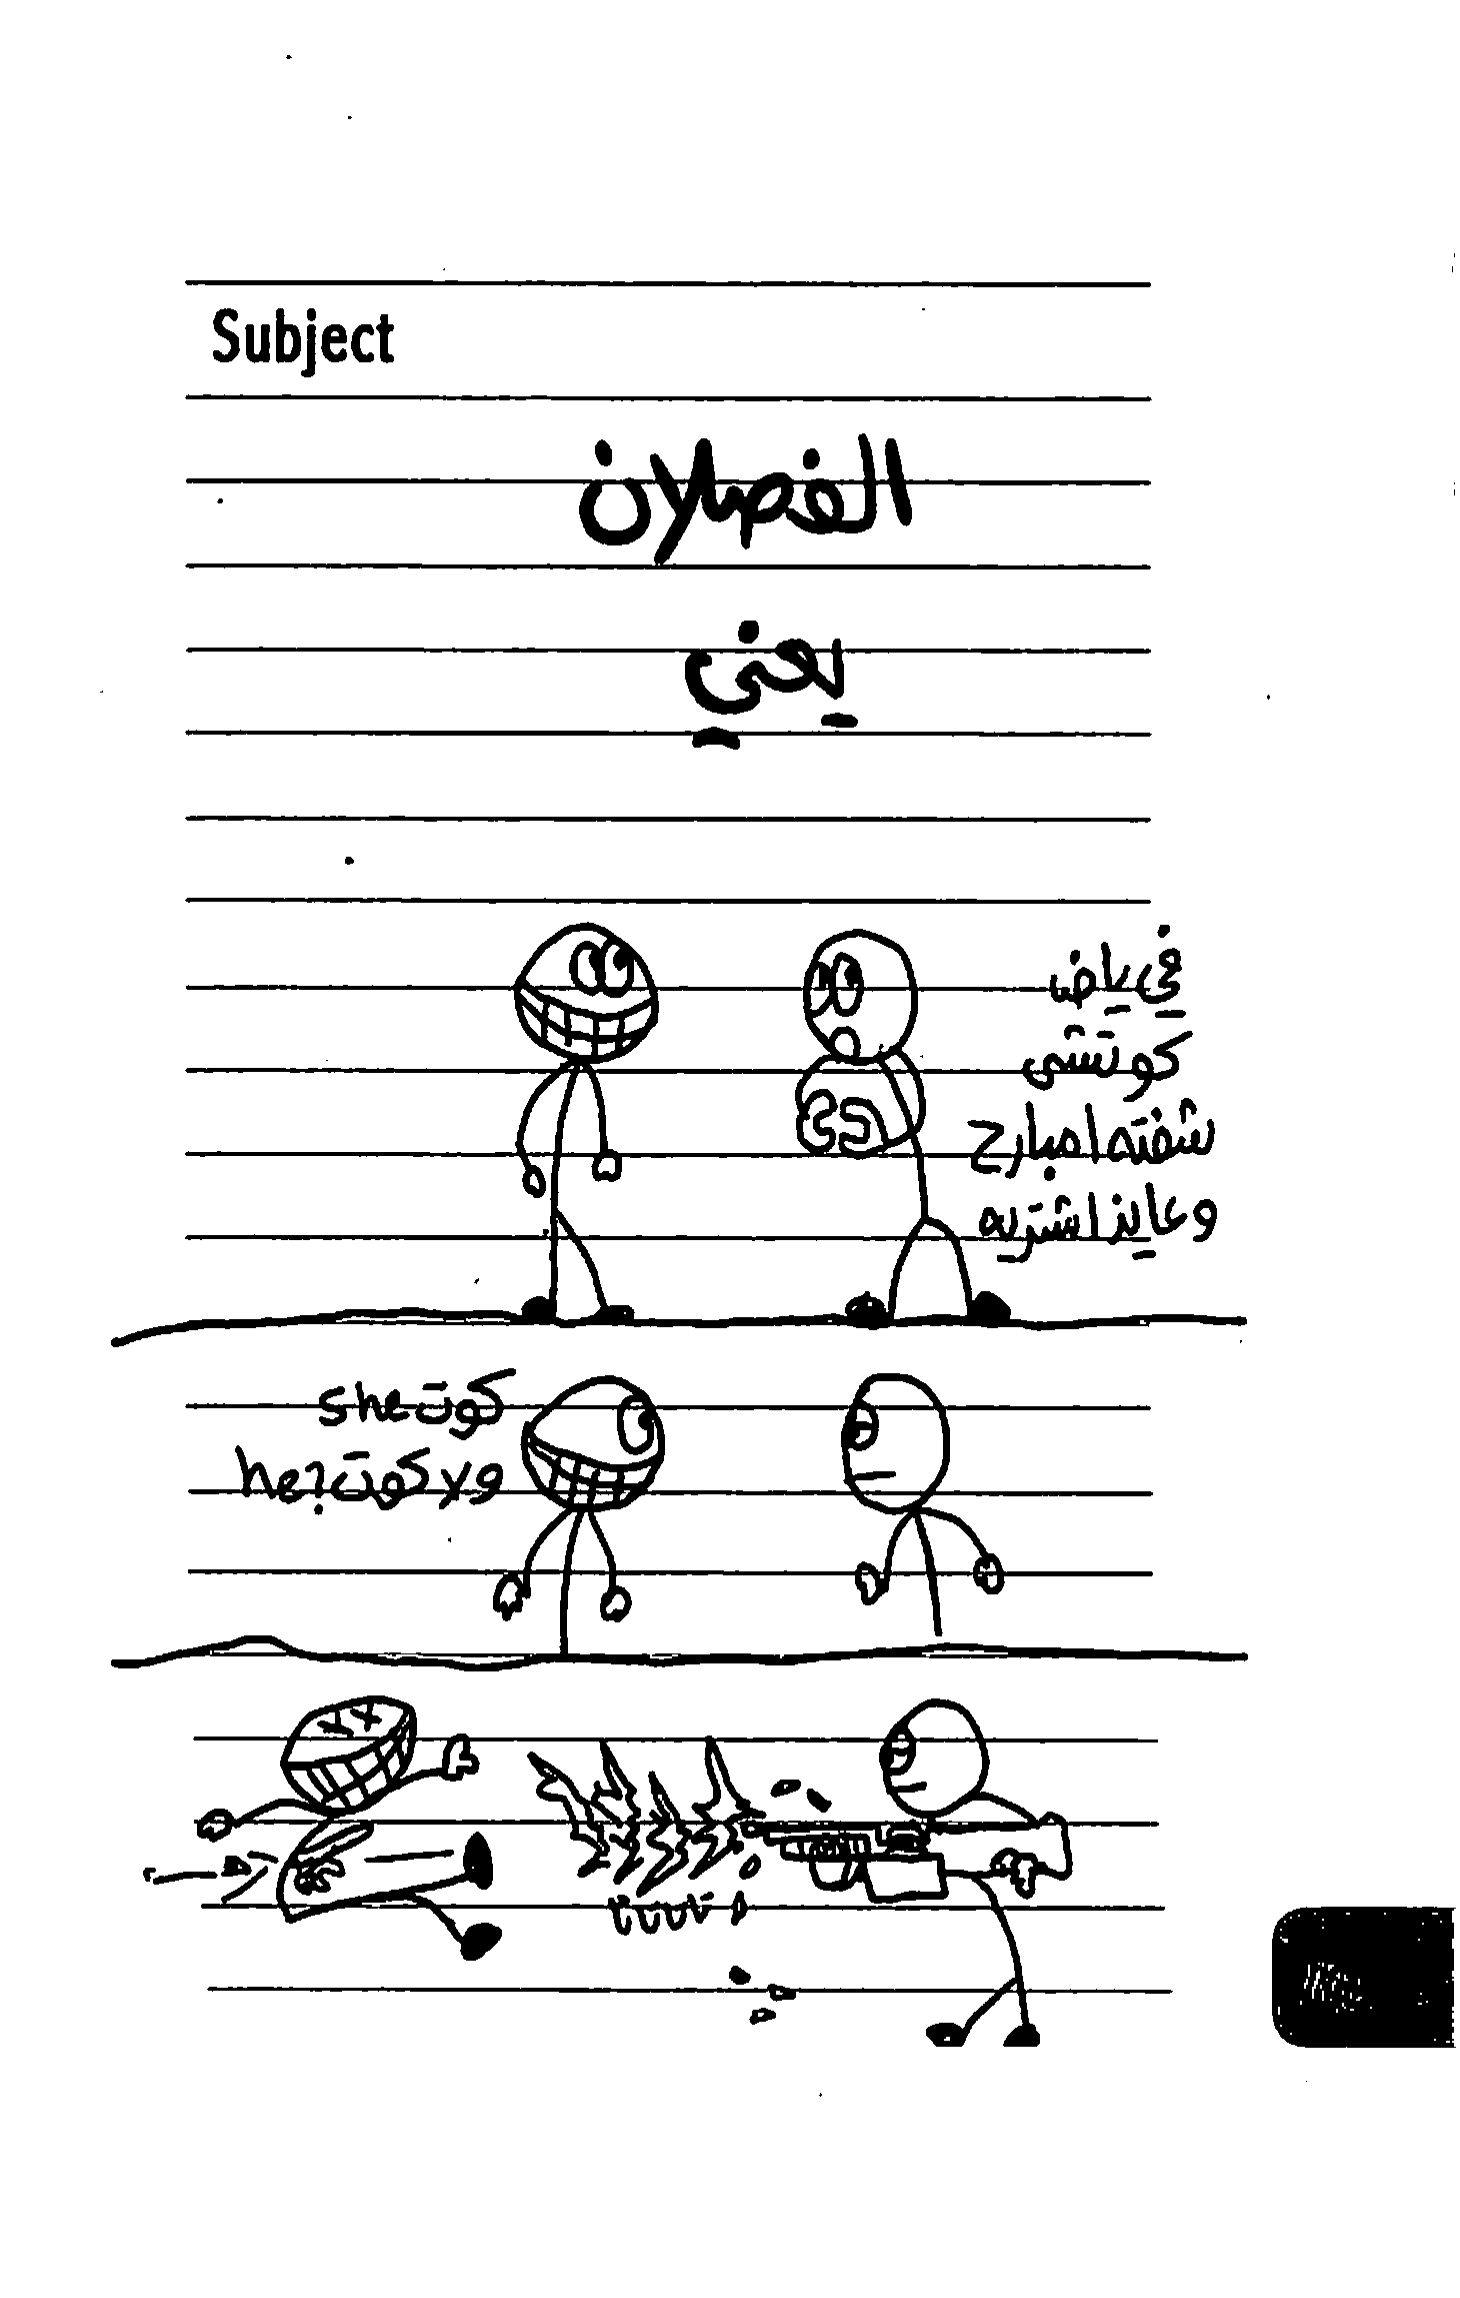 Subject
الفصلان
يعني
في ياض
كوتشي
شفته امبارح
وعايز اشتريه
كوت she
ولا كوت he?
تتتت